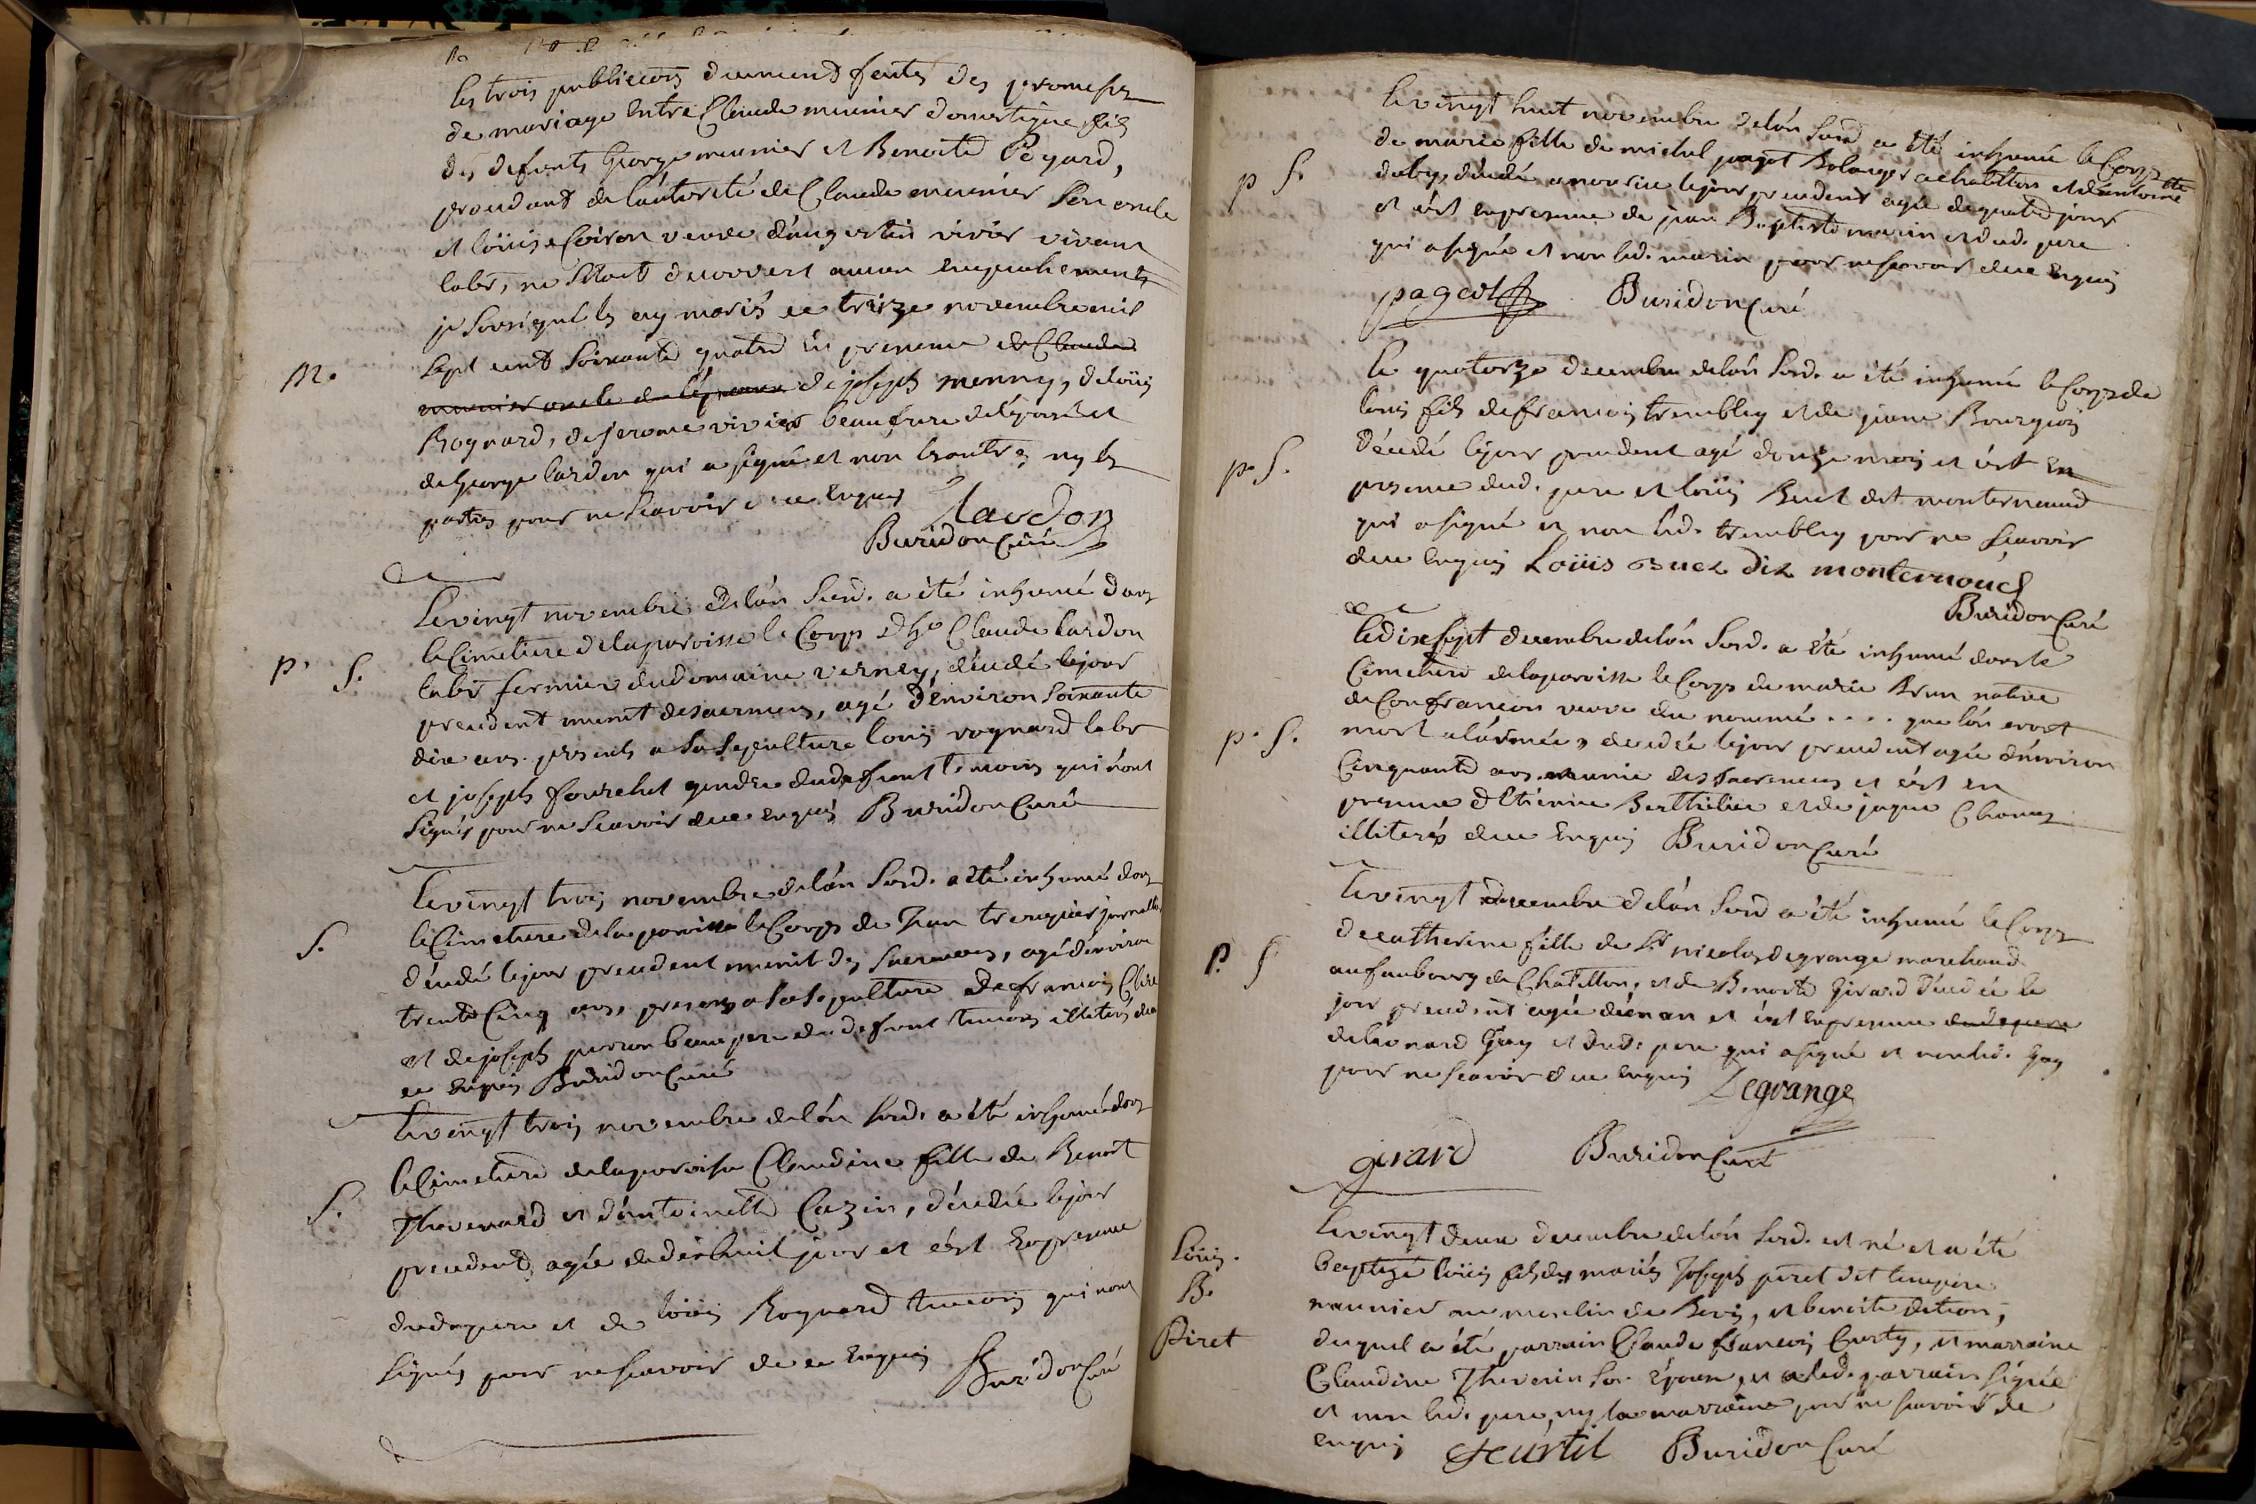 les trois publica͠ons duement fautes des promesses
de mariage entre Claude meunier domestique fils
des defunts George meunier et Benoite Pegard,
procedant de l'autorité de Claude meunier son oncle
et loüise Coiron veuve d'augustin vivier vivant
labr, ne s'étant decouvert aucun empechements
je soussigné les ay mariés ce treize novembre mil
M.
sept cent soixante quatre en presence de Claude
meunier oncle de l'epoux de joseph menny, de loüis
Rognard, de jerome vivier beaufrere de l'epouse et
de George lardon qui a signé et non les autres ny les
parties pour ne scavoir de ce enquis Lardon
Buridon Curé
Le vingt novembre de l'án susd. a été inhumé dans
le Cimetiere de la paroisse le Corps d'h.e Claude lardon
p. S.
labr fermier du domaine verney, décedé le jour
precedent munit des sacremens, agé d'environ soixante
dix ans. presents a sa sepulture louis rognard labr
et joseph fourchet gendre dud. defunt temoins qui n'ont
signés pour ne scavoir de ce enquis Buridon Curé
Le vingt trois novembre de l'án susd. a été inhumé dans
S.
le Cimetiere de la paroisse le Corps de Jean journallr.
décedé le jour precedent munit des sacremens, agé d'environ
trente Cinq ans, presens a sa sepulture de francois
et de joseph perron beaupere du defunt temoins illiterés de
ce enquis Buridon Curé
Le vingt trois novembre de l'án susd. a été inhumé dans
le Cimetiere de la paroisse Claudine fille de Benoit
S.
Thevenard et d'antoinette Cazin, décedée le jour
precedent, agée de dixhuit jours et c'est en presence
dud. pere et de loüis Rognard temoins qui n'ont
signés pour ne scavoir de ce enquis Buridon Curé
Le vingt huit novembre de l'án susd a été inhumé le Corps
de marie fille de michel pagot Bolanger a chatillon et d'antoinette
p S.
décedée le jour precedent agée de quatre jours
et c'est en presence de jean Baptiste marin et dud. pere
qui a signé et non led. marin pour ne scavoir de ce enquis
pageot Buridon Curé
Le quatorze decembre de l'án susd. a été inhumé le Corps de
louis fils de francois trembley et de jeanne Bourgeois
p. S.
décedé le jour precedent agé d'onze mois et c'est en
presence dud. pere et loüis Buet dit monternaud
qui a signé et non led. trembley pour ne scavoir
de ce enquis Loüis Buet dit monternoud
Buridon Curé
Le dix sept decembre de l'án susd. a été inhumé dans le
Cimetiere de la paroisse le Corps de marie Brun native
de Confrancon veuve du nommé .... que l'on croit
p. S.
mort a l'armée, decedée le jour precedent agée d'environ
Cinquante ans munie des sacremens et c'est en
presence d'Etienne Berthelier et de jaque
illiterés de ce enquis Buridon Curé
Le vingt decembre de l'án susd a été inhumé le Corps
de catherine fille de Sr nicolas degrange marchand
P. S
au faubourg de Chatillon, et de Benoite Girard décedée le
jour precedent agée d'un an et c'est en presence dud. pere
de leonard Gay et dud. pere qui a signé et non led. Gay
pour ne scavoir de ce enquis Degrange
girard Buridon Curé
Le vingt deux decembre de l'án susd. est né et a été
Loüis.
baptizé loüis fils des mariés Joseph piret dit
B.
meunier au moulin de et benoite
Piret
duquel a été parrain Claude francois Curty, et marraine
Claudine Thevenin son epouse, et a led. parrain signé
et non led. pere, ny la marraine pour ne scavoir de
enquis Buridon Curé